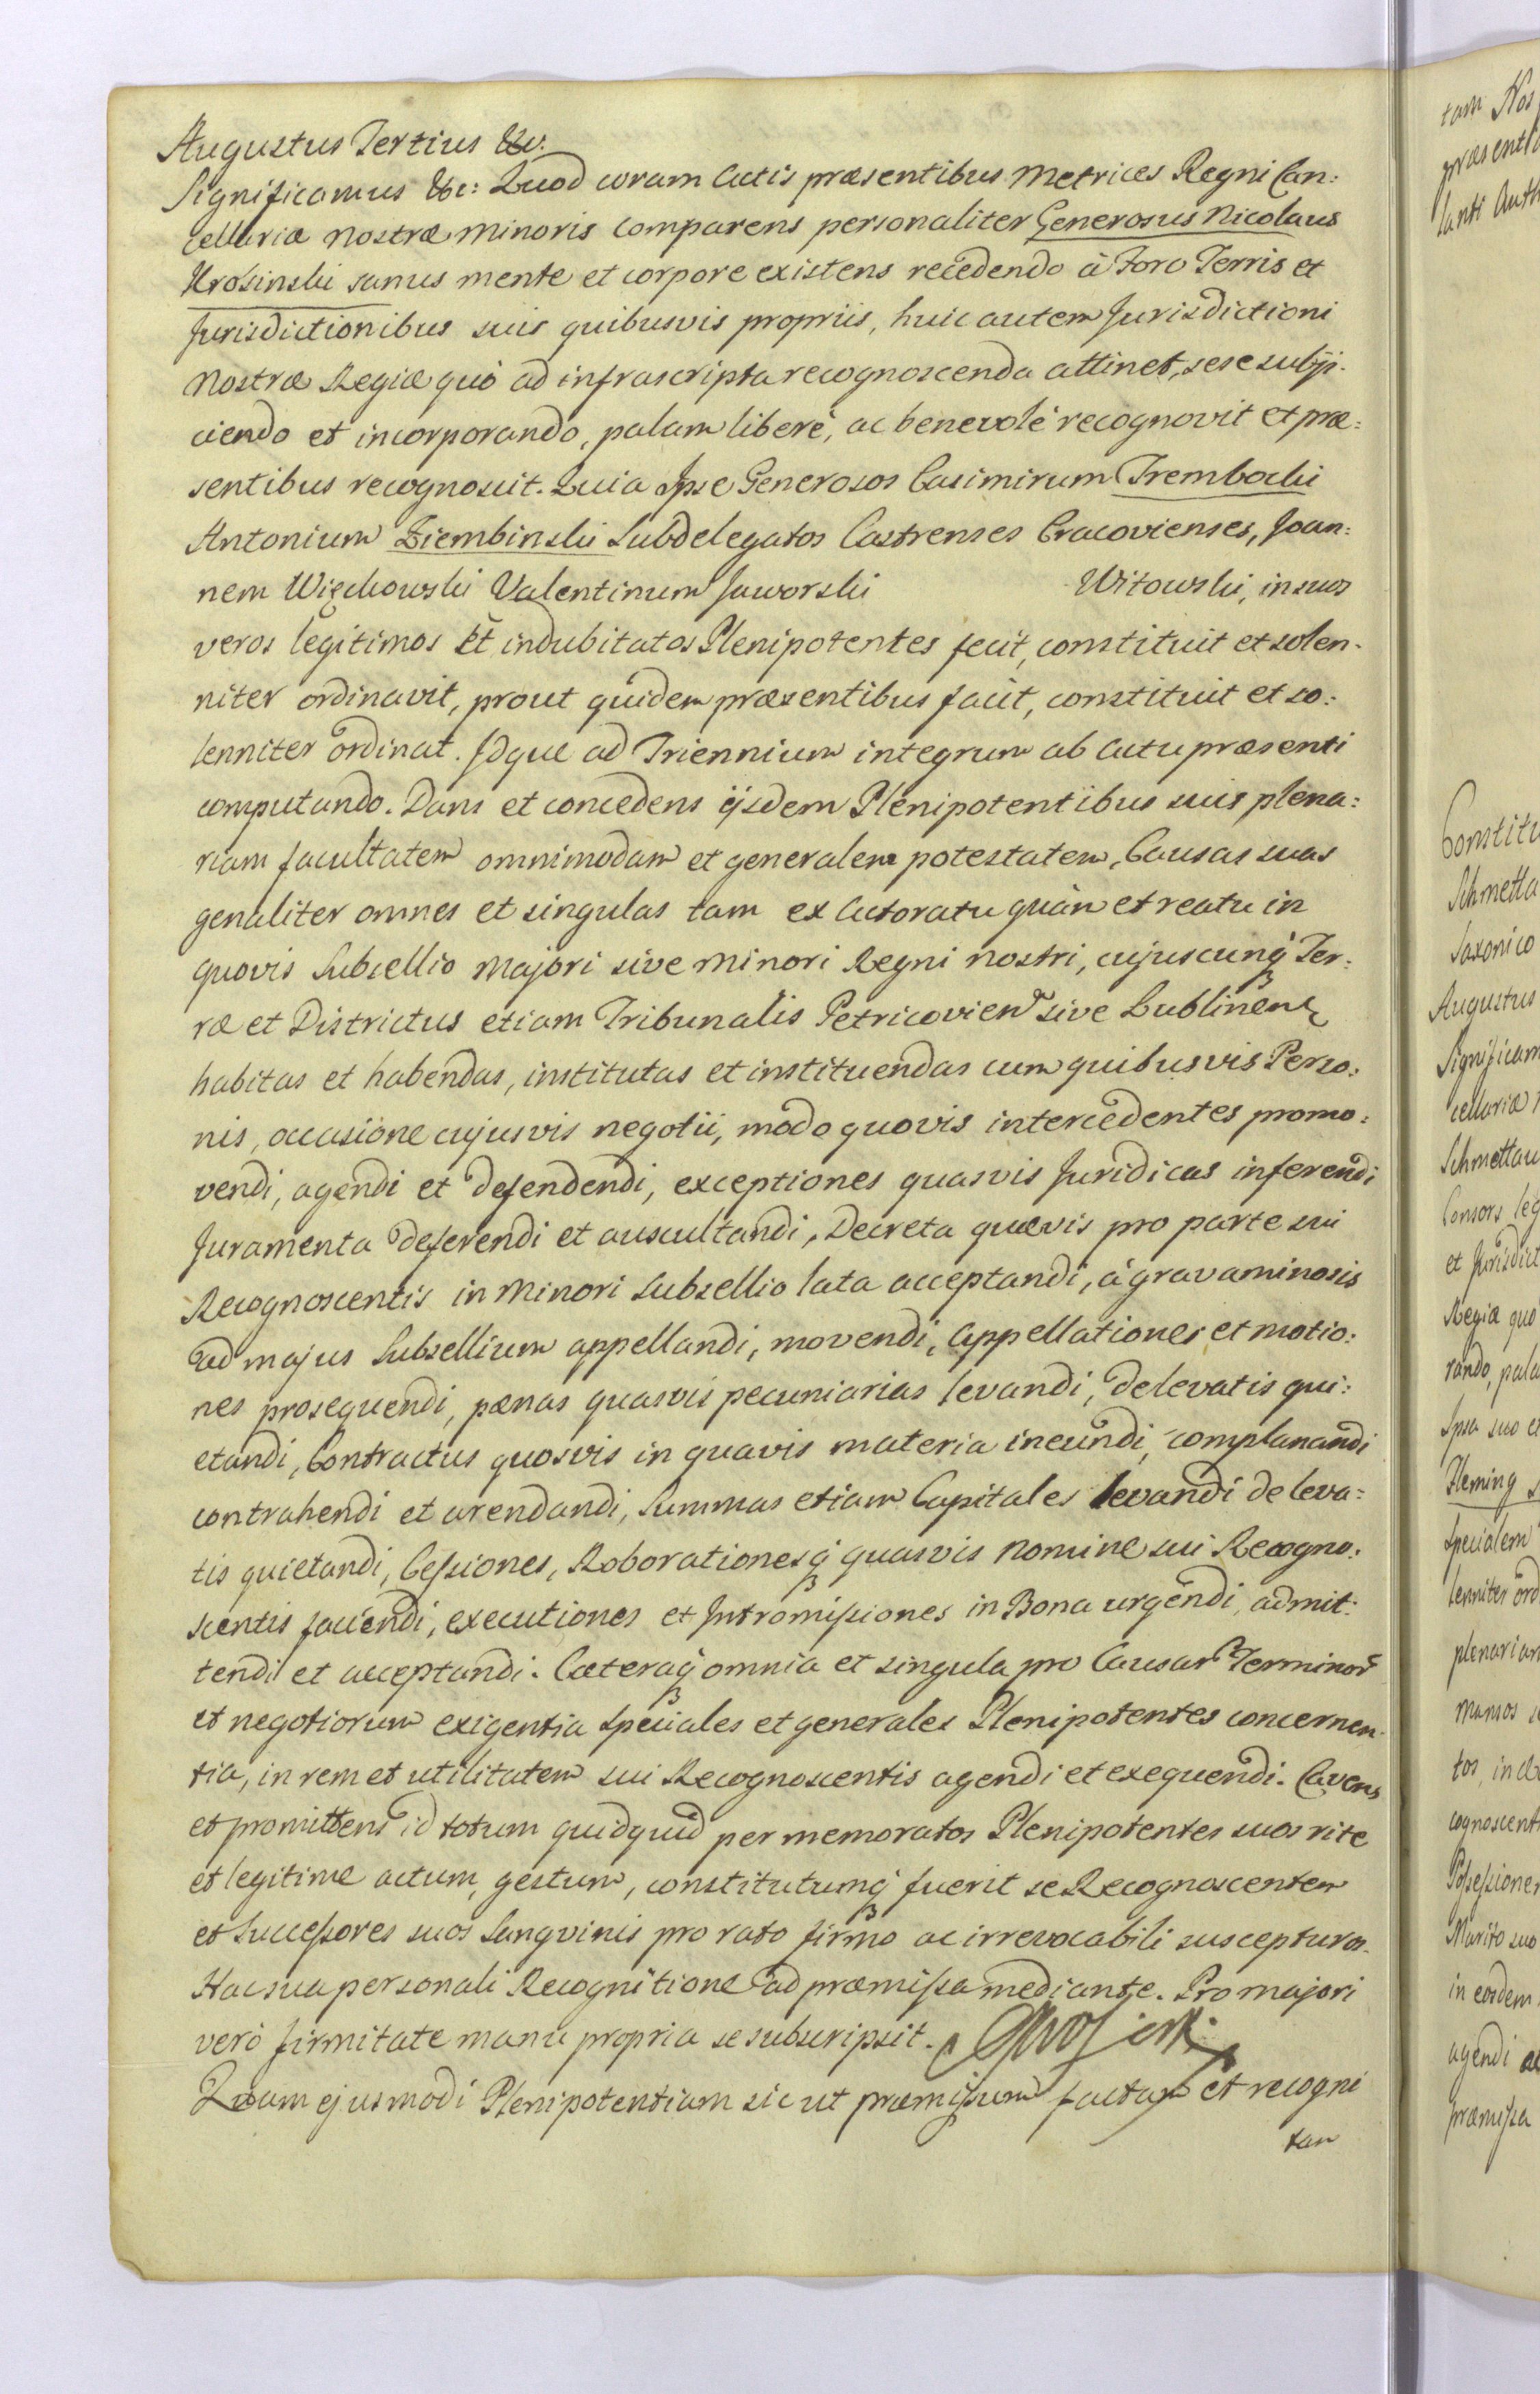 Augustus Tertius &c.
Significamus &c: Quod coram Actis præsentibus Metrices Regni Can:
cellariæ Nostræ Minoris comparens personaliter Generosus Nicolaus
Krosinski sanus mente et corpore existens recedendo à Foro Terris et
Jurisdictionibus suis quibusvis propriis, huic autem Jurisdictioni
Nostræ Regiæ quò ad infrascripta recognoscenda attinet, sese subji-
ciendo et incorporando, palam liberè, ac benevolè recognovit et præ:
sentibus recognoscit. Quia Ipse Generosos Casimirum Trembocki
Antonium Ziembinski Subdelegatos Castrenses Cracovienses, Joan:
nem Więckowski Valentinum Jaworski Witowski, in suos
veros legitimos et indubitatos Plenipotentes fecit, constituit et solen-
niter ordinavit, prout quidem præsentibus facit, constituit et so:
lenniter ordinat. Idque ad Triennium integrum ab Actu præsenti
computando. Dans et concedens ijsdem Plenipotentibus suis plena:
riam facultatem omnimodam et generalem potestatem, Causas suas
genaliter omnes et singulas tam ex Actoratu quàm et reatu in
quovis Subsellio Majori sive Minori Regni Nostri, cujuscunq̃ Ter:
ræ et Districtus etiam Tribunalis Petricovien sive Lublinen
habitas et habendas, institutas et instituendas cum quibusvis Perso:
nis, occasione cujusvis negotii, modo quovis intercedentes promo:
vendi, agendi et defendendi, exceptiones quasvis Juridicas inferendi
Juramenta deferendi et auscultandi, Decreta quævis pro parte sui
Recognoscentis in Minori Subsellio lata acceptandi, à gravaminosis
ad majus Subsellium appellandi, movendi, Appellationes et motio:
nes prosequendi, pænas quasvis pecuniarias levandi, de levatis qui:
etandi, Contractus quosvis in quavis materia ineundi, complanandi
contrahendi et arendandi, Summas etiam Capitales levandi de leva:
tis quietandi, Cessiones, Roborationesq̃ quasvis nomine sui Recogno:
scentis faciendi, executiones et Intromissiones in Bona urgendi, admit:
tendi et acceptandi. Cæteraq̃ omnia et singula pro Causar Terminor
et negotiorum exigentia Speciales et generales Plenipotentes concernen-
tia, in rem et utilitatem sui Recognoscentis agendi et exequendi. Cavens
et promittens id totum quidquid per memoratos Plenipotentes suos rite
et legitime actum, gestum, constitutumq̃ fuerit se Recognoscentem
et Successores suos Sangvinis pro rato firmo ac irrevocabili suscepturos.
Hac sua personali Recognitione ad præmissa mediante. Pro majori
verò firmitate manu propria se subscripsit.
Quam ejusmodi Plenipotentiam sic ut præmissum factam et recogni
tam
tam Nos
præsenti
lanti Auth
Constitu
Schmetta
Saxonico
Augustus
Significam
cellariæ
Schmettau
Consors leg
et Jurisdict
Regiæ quò
rando, pala
Ipsa suo
Fleming
Specialem
lenniter ord
plenariam
mansos
tos, in
cognoscenti
Possessiones
Marito suo
in eosdem
agendi
præmissa